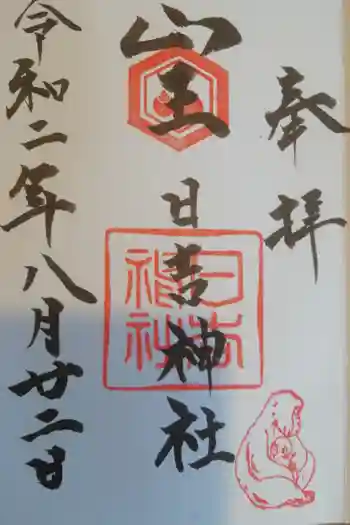 奉拝
山王
日吉神社
日吉
神社
令和二年八月廿二日